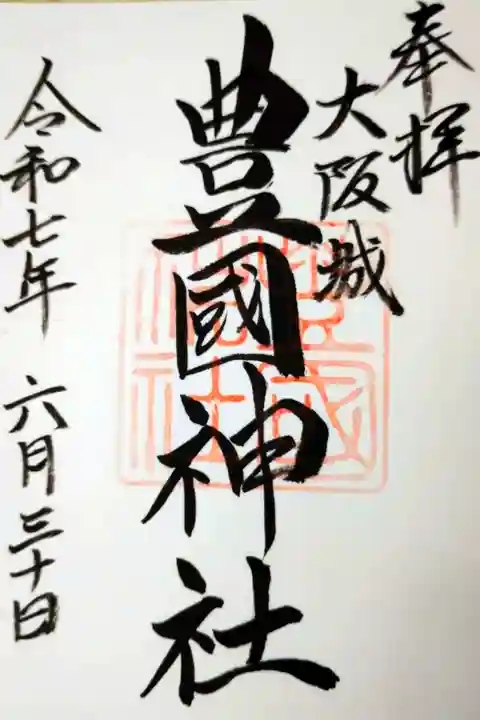 奉拝
大阪城
豊國神社
令和七年 六月三十日
豊國
神社